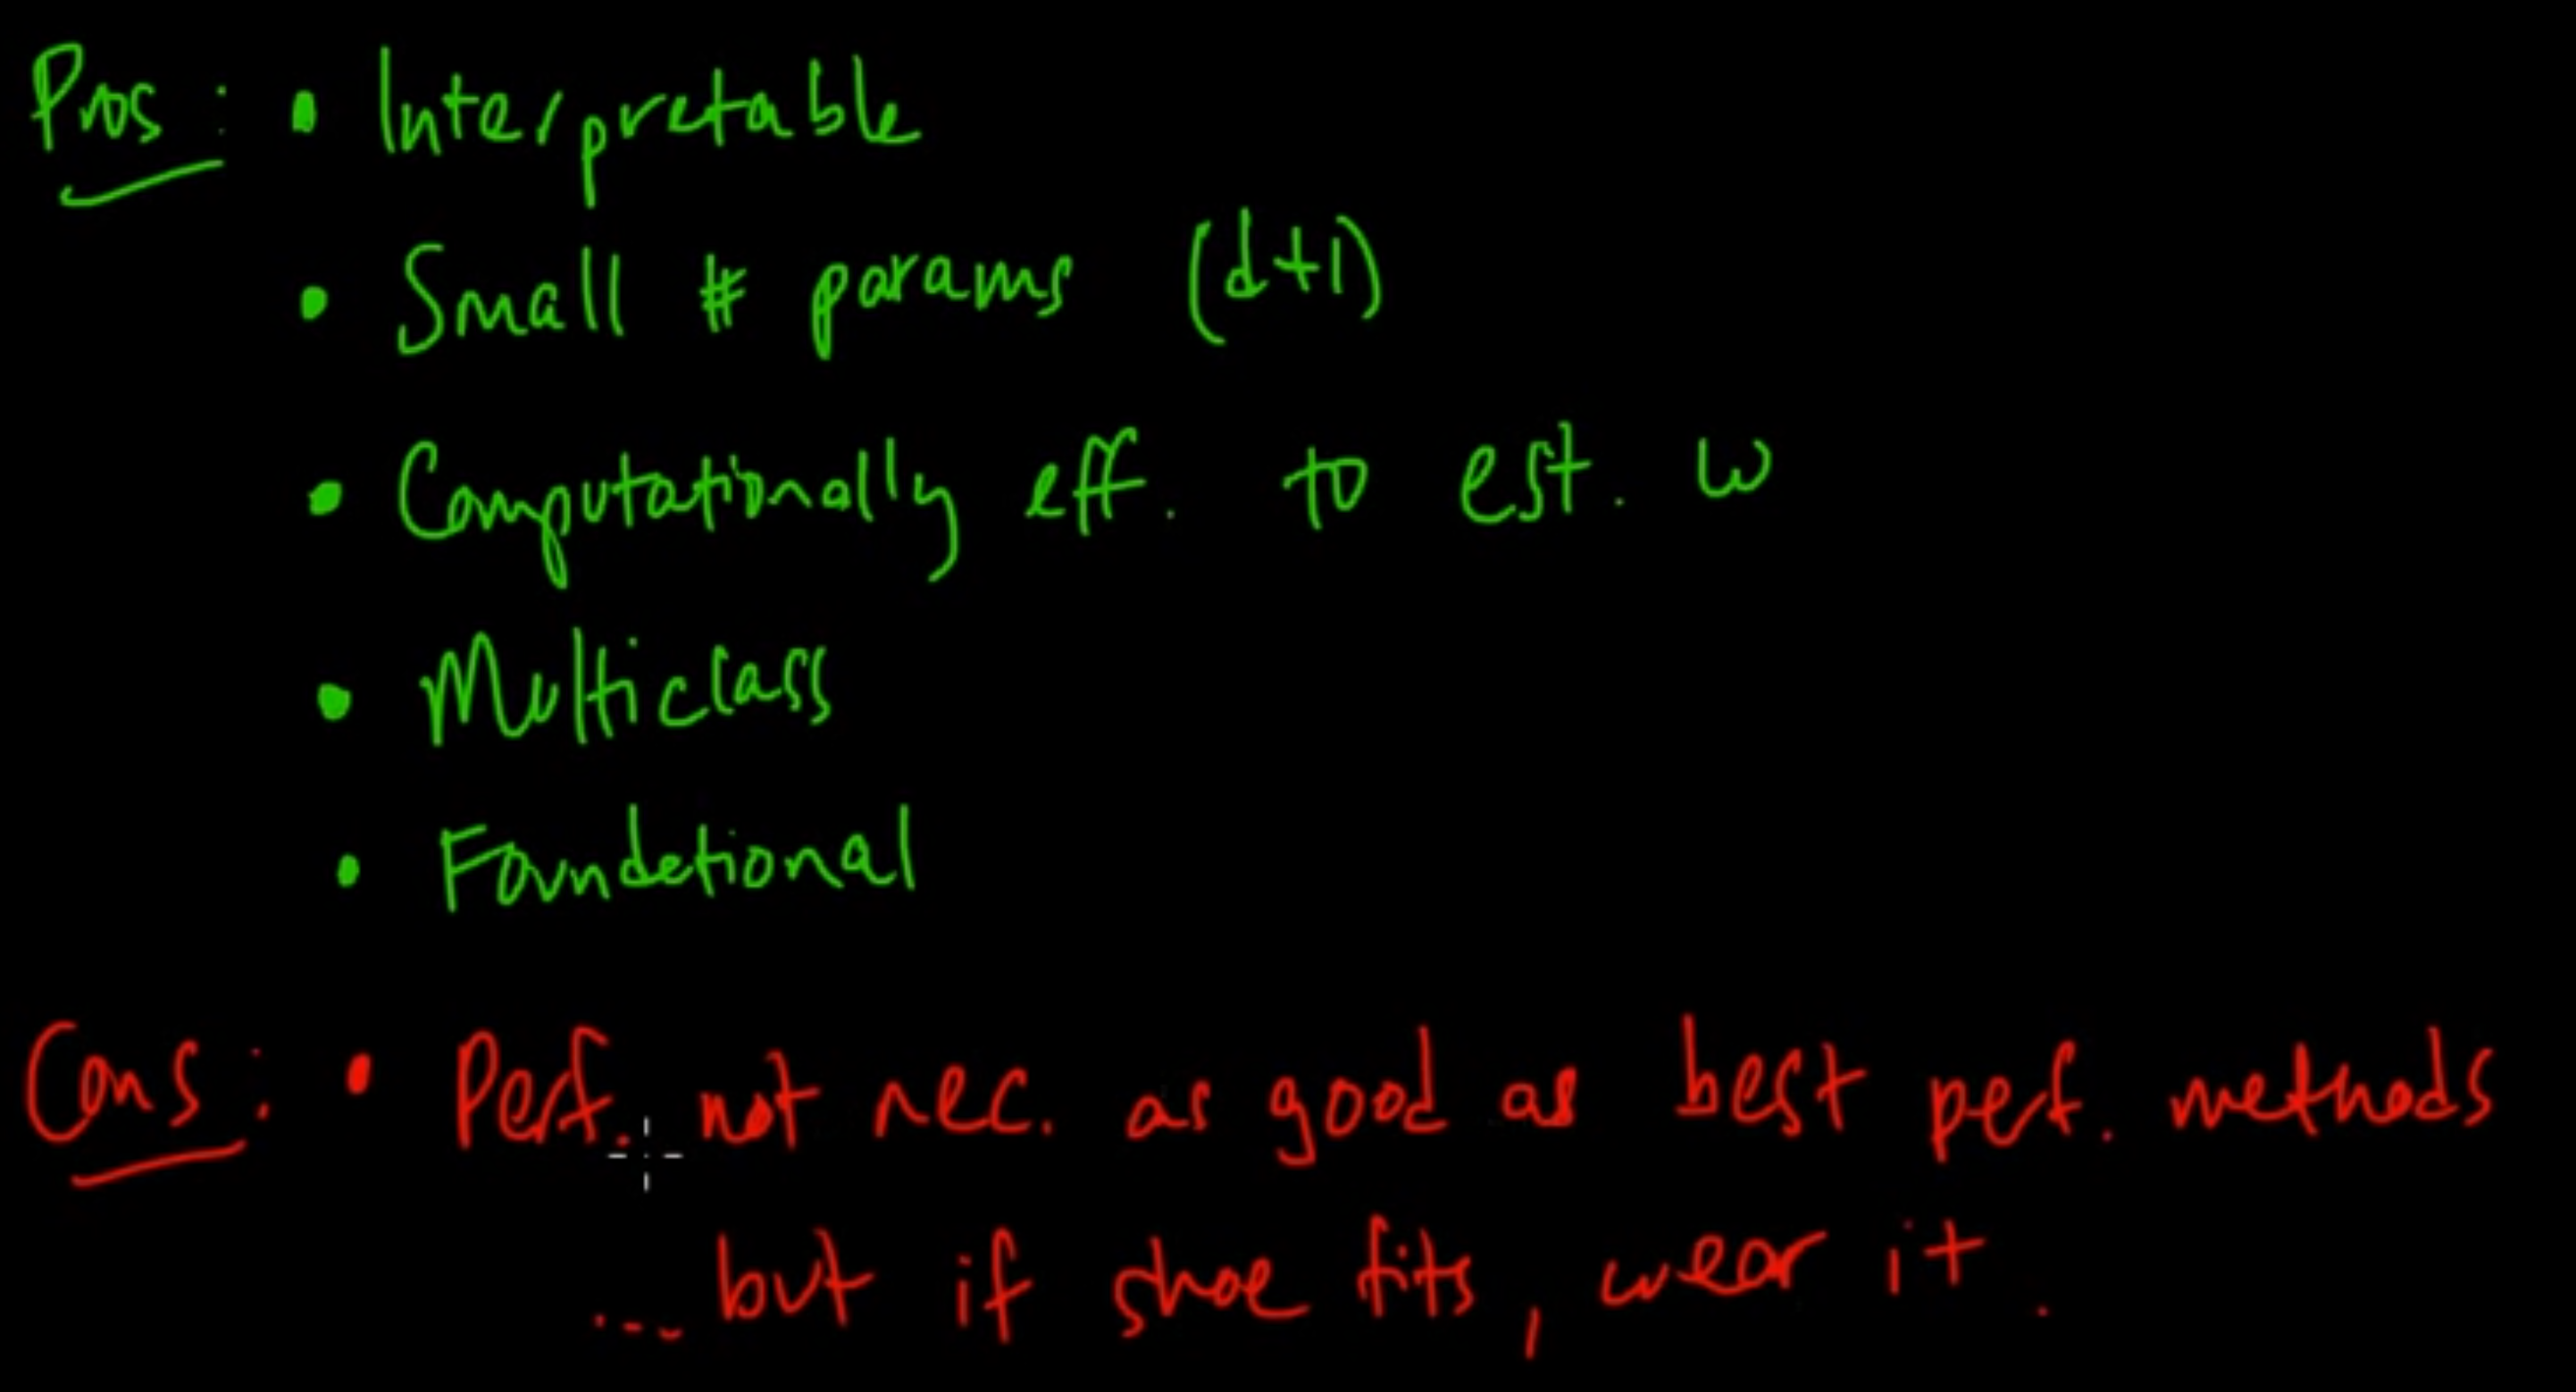 Pros: • Interpretable
• Small # params (d+1)
• Computationally eff. to est. w
• Multiclass
• Foundational
Cons: • Perf. not nec. as good as best perf. methods
... but if shoe fits, wear it.